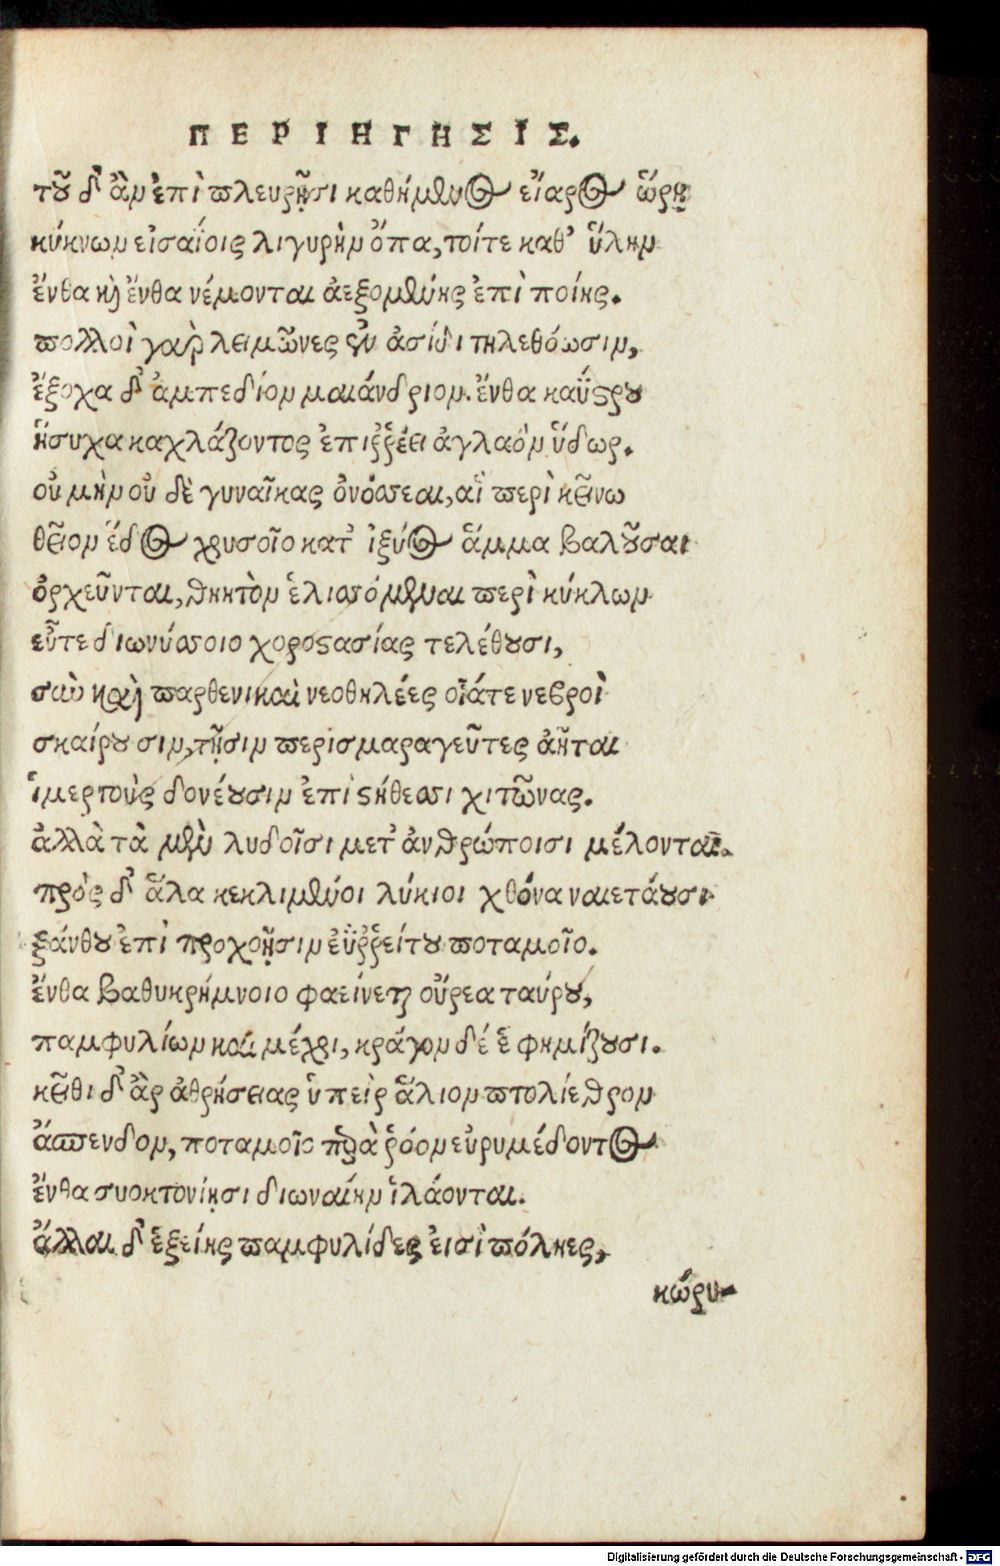 ΠΕΡΙΗΓΗΣΙΣ.
τοῦ δ' ἂν ἐπὶ πλευρῇσι καθήμενος εἴαρος ὥρῃ
κύκνων εἰσαΐοις λιγυρὴν ὄπα, τοίτε καθ' ὕλην
ἔνθα καὶ ἔνθα νέμονται ἀεξομένης ἐπὶ ποίης.
πολλοὶ γὰρ λειμῶνες ἐν ἀσίδι τηλεθόωσιν,
ἔξοχα δ' ἀμπεδίον μαιάνδριον. ἔνθα καΰστρου
ἥσυχα καχλάζοντος ἐπιῤῥέει ἀγλαὸν ὕδωρ.
οὐ μὴν οὐ δὲ γυναῖκας ὀνόσσεαι, αἳ περὶ κεῖνο
θεῖον ἕδος χρυσοῖο κατ' ἰξύος ἅμμα βαλοῦσαι
ὀρχεῦνται, θηητὸν ἑλισσόμεναι περὶ κύκλον
εὖτε διωνύσσοιο χοροστασίας τελέθουσι,
σὺν καὶ παρθενικαὶ νεοθηλέες οἷάτε νεβροὶ
σκαίρουσιν, τῇσιν περισμαραγεῦτες ἀῆται
ἱμερτοὺς δονέουσιν ἐπὶ στήθεσσι χιτῶνας.
ἀλλὰ τὰ μὲν λυδοῖσι μετ' ἀνθρώποισι μέλονται.
πρὸς δ' ἅλα κεκλιμένοι λύκιοι χθόνα ναιετάουσι
ξάνθου ἐπὶ προχοῇσιν ἐϋῤῥείτου ποταμοῖο.
ἔνθα βαθυκρήμνοιο φαείνεται οὔρεα ταύρου,
παμφυλίων καὶ μέχρι, κράγον δέ ἑ φημίζουσι.
κεῖθι δ' ἂρ ἀθρήσειας ὑπεὶρ ἅλιον πτολίεθρον
ἄσπενδον, ποταμοῖο παρὰ ῥόον εὐρυμέδοντος
ἔνθα συοκτονίῃσι διωναίην ἱλάονται.
ἄλλαι δ' ἑξείης παμφυλίδες εἰσὶ πόληες,
κώρυ-
Digitalisierung gefördert durch die Deutsche Forschungsgemeinschaft - DFG